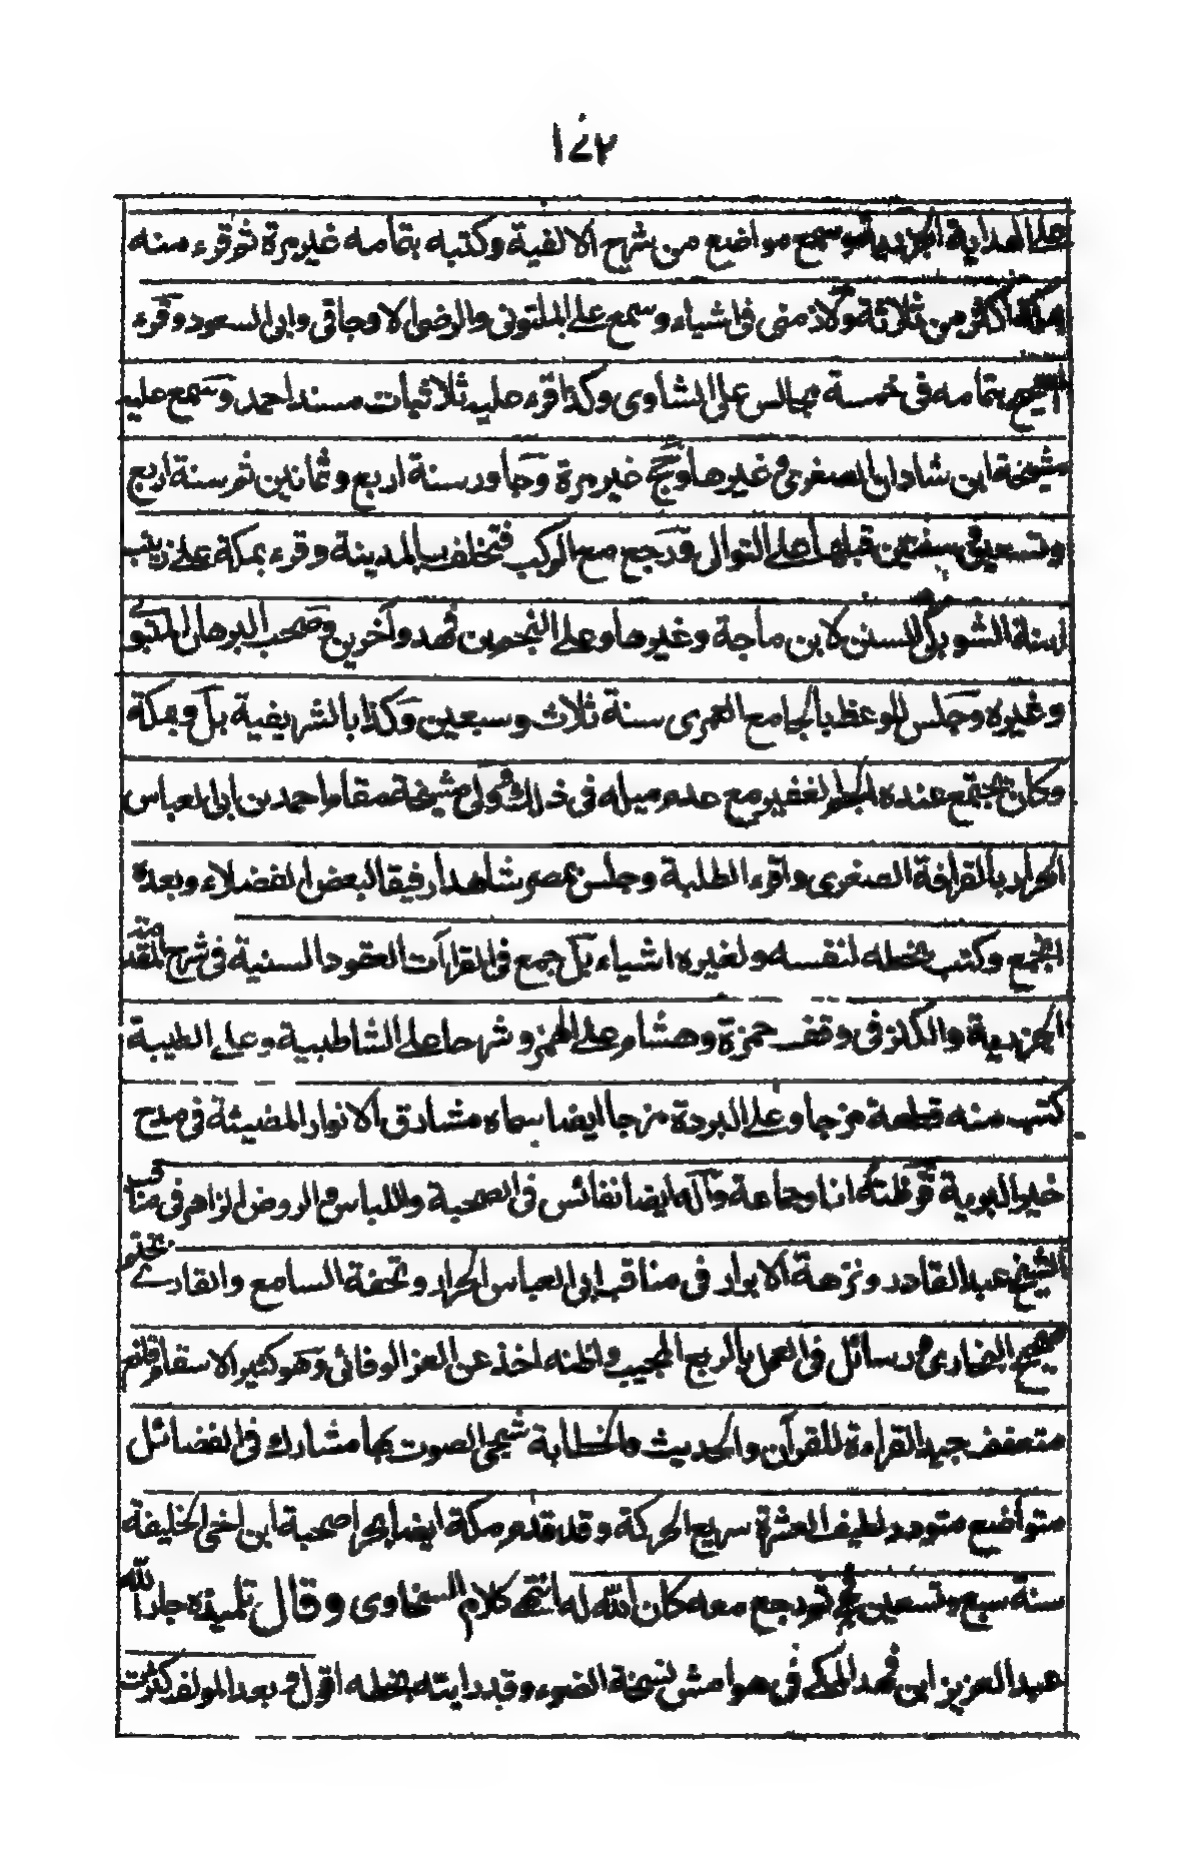 ١٤٧
على الهداية الجزرية وسمع مواضع من شرح الالفية وكتبه بتمامه غير مرة ثم قرء منه
اكثر من ثلاثة وكذا منى فى اشياء وسمع على الملتونى والرضى الاوجاقى وابى السعود وقرء
الصحيح بتمامه فى خمسة مجالس على الشاوى وكذا قرء عليه ثلاثيات مسند احمد وسمع عليه
مشيخة ابن شاذان الصغرى وغيرها وحج غير مرة وجاور سنة اربع وثمانين ثم سنة اربع
وتسعين سنتين قبلها على التوال ورجع مع الركب فتخلف بالمدينة وقرء بمكة على زينب
ابنة الشوبكى السنن لابن ماجة وغيرها وعلى النجم بن فهد وآخرين وصحب البرهان المتبو
وغيره وجلس للوعظ بالجامع العمرى سنة ثلاث وسبعين وكذا بالشريفية بل وبمكة
وكان يجتمع عنده الجم الغفير مع عدم ميله فى ذلك وولى مشيخة مقام احمد بن ابى العباس
الحرار بالقرافة الصغرى واقرء الطلبة وجلس بمصر شاهدا رفيقا لبعض الفضلاء وبعده
انجمع وكتب بخطه لنفسه ولغيره اشياء بل جمع فى القراآت العقود السنية فى شرح المقدمة
الجزرية والكنز فى وقف حمزة وهشام على الهمز وشرحا على الشاطبية وعلى الطيبة
كتب منه قطعة مزجا وعلى البردة مزجا ايضا سماه مشارق الانوار المضيئة فى مدح
خير البرية قرظته انا وجماعة وله ايضا نفائس فى الصحبة واللباس والروض الزاهر فى مناقب
الشيخ عبد القادر ونزهة الابرار فى مناقب ابى العباس الحرار وتحفة السامع والقارئ بختم
صحيح البخارى ورسائل فى العمل بالربع المجيب واظنه اخذ عن العز الوفائى وهو كثير الاسقام قانع
متعفف جيد القراءة للقرآن والحديث والخطابة شجى الصوت بها مشارك فى الفضائل
متواضع متودد لطيف العشرة سريع الحركة وقد قدم مكة ايضا بحرا صحبة ابن اخى الخليفة
سنة سبع وتسعين فحج ثم رجع معه كان الله له انتهى كلام السخاوى وقال تلميذه جار الله
عبد العزيز ابن فهد المكى فى هوامش نسخة الضوء وقد رايته بخطه اقول وبعد المولف كثرت